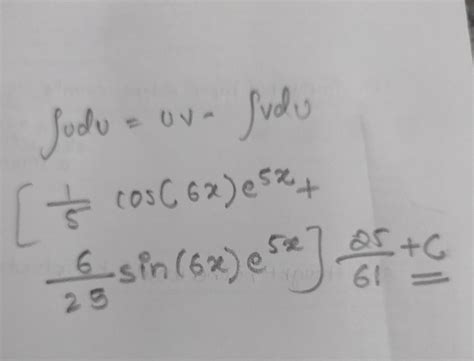 ∫udu = uv - ∫vdu
[ 1/5 cos(6x)e^5x +
6/25 sin(6x)e^5x ] 25/61 + C